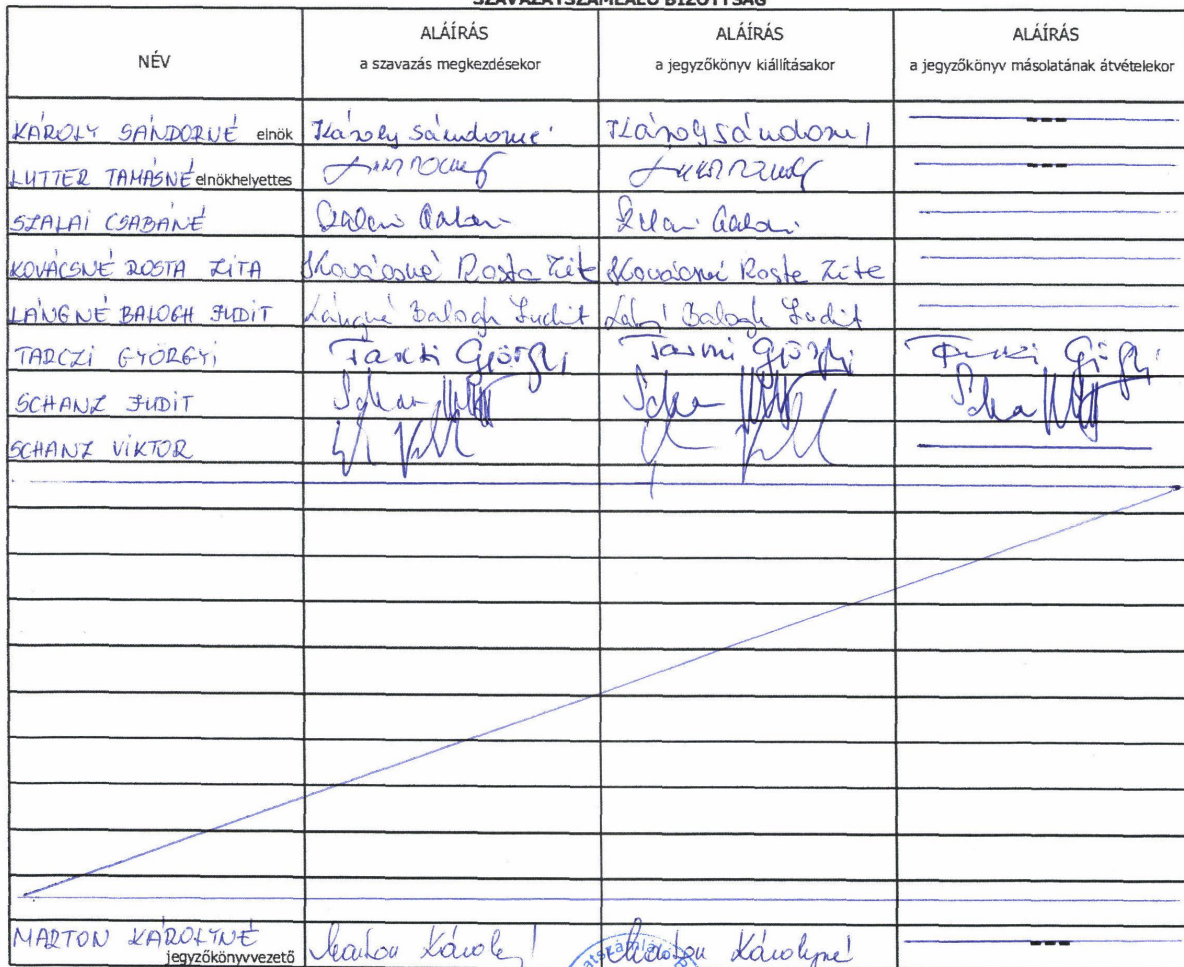 SZAVAZATSZÁMLÁLÓ BIZOTTSÁG
NÉV
ALÁÍRÁS
a szavazás megkezdésekor
ALÁÍRÁS
a jegyzőkönyv kiállításakor
ALÁÍRÁS
a jegyzőkönyv másolatának átvételekor
KÁROLY SÁNDORNÉ elnök Károly Sándorné Károly Sándorné ---
LUTTER TAMÁSNÉ elnökhelyettes ---
SZALAI CSABÁNÉ
KOVÁCSNÉ ROSTA ZITA Kovácsné Rosta Zita Kovácsné Rosta Zita
LÁNGNÉ BALOGH JUDIT Lángné Balogh Judit Balogh Judit
TARCZI GYÖRGYI Tarczi Györgyi Györgyi
SCHANZ JUDIT
SCHANZ VIKTOR
MARTON KÁROLYNÉ jegyzőkönyvvezető Marton Károlyné Marton Károlyné ---